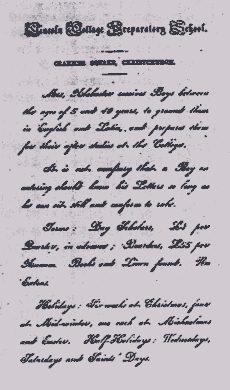 Lincoln College Preparatory School.
CRANMER SQUARE, CHRISTCHURCH.
Mrs. Alabaster receives Boys between
the ages of 5 and 12 years, to ground them
in English and Latin, and prepare them
for their after studies at the College.
It is not necessary that a Boy on
entering should know his Letters so long as
he can sit still and conform to rule.
Terms: Day Scholars, per
Quarter, in advance; Boarders, per
Annum. Books and Linen found. No
Extras.
Holidays: Six weeks at Christmas, four
at Mid-winter, one each at Michaelmas
and Easter. Half-Holidays: Wednesdays,
Saturdays and Saints' Days.